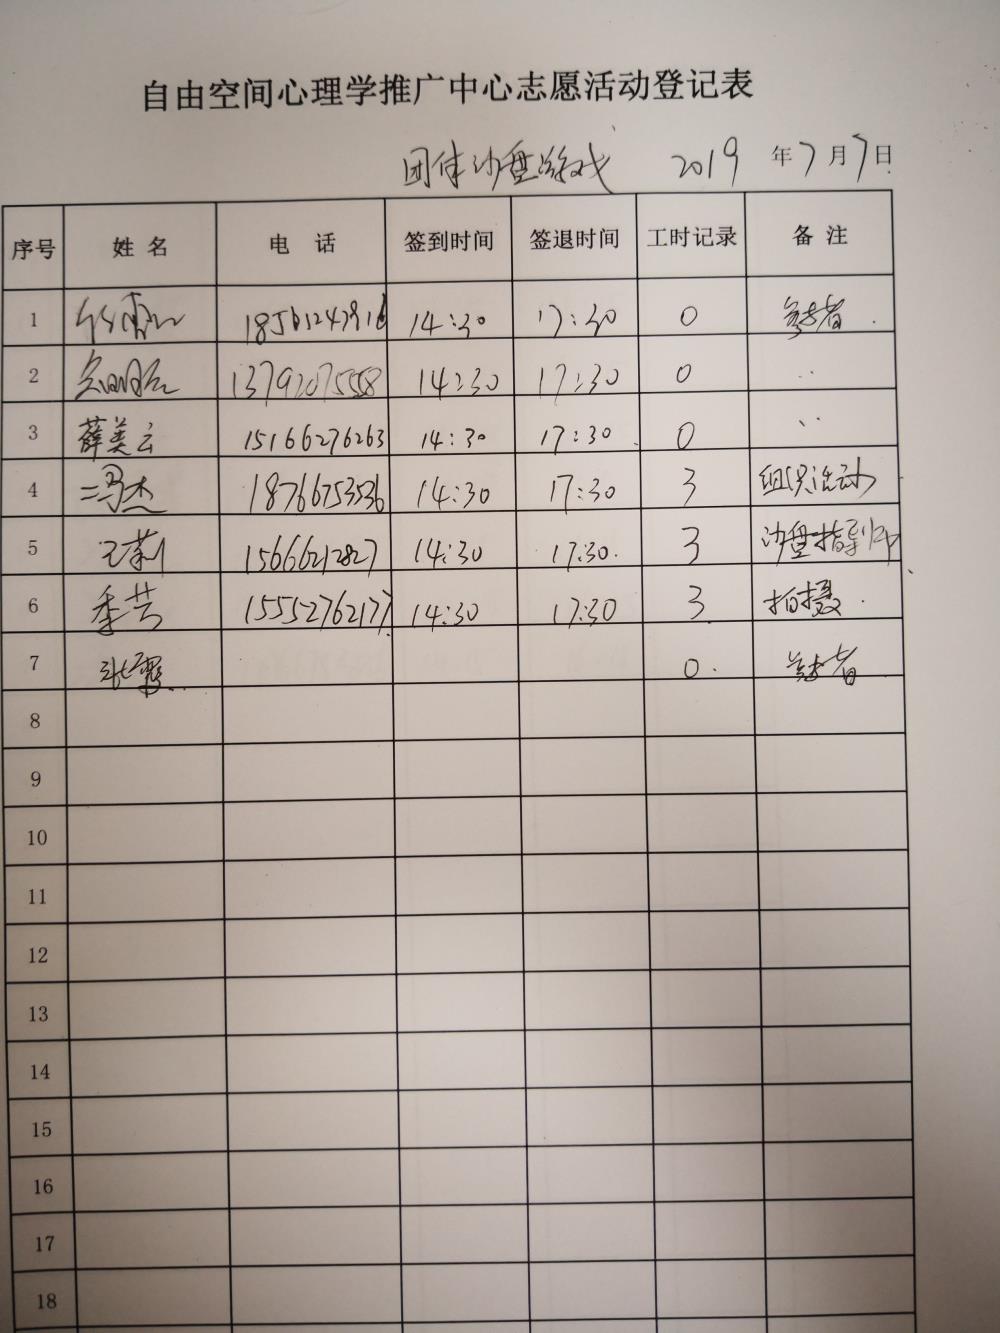 自由空间心理学推广中心志愿活动登记表
团体沙盘游戏 2019 年7月7日
序号 姓名 电话 签到时间 签退时间 工时记录 备注
1 14:30 17:30 0 参与者
2 13792075558 14:30 17:30 0 ··
3 薛美云 15166276263 14:30 17:30 0 ··
4 冯杰 18766753536 14:30 17:30 3 组织活动
5 王莉 15666212827 14:30 17:30 3 沙盘指导师
6 季芸 15552762177 14:30 17:30 3 拍摄
7 张霞 0 参与者
8
9
10
11
12
13
14
15
16
17
18